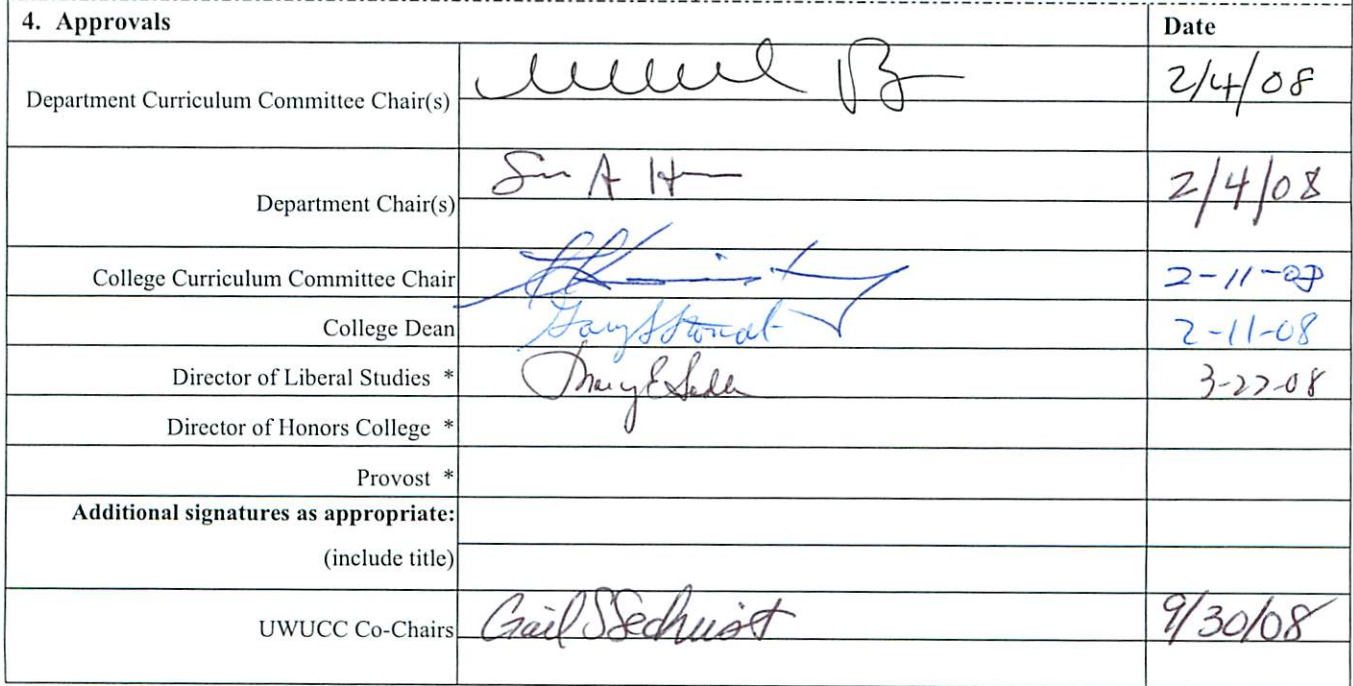 4. Approvals Date
Department Curriculum Committee Chair(s) 2/4/08
Department Chair(s) 2/4/08
College Curriculum Committee Chair 2-11-08
College Dean 2-11-08
Director of Liberal Studies * 3-27-08
Director of Honors College *
Provost *
Additional signatures as appropriate:
(include title)
UWUCC Co-Chairs Gail S Sechrist 9/30/08